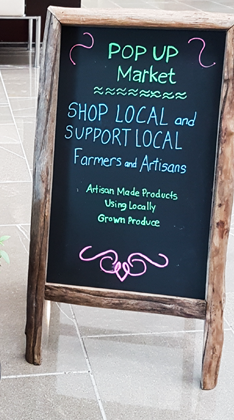 POP UP
Market
SHOP LOCAL and
SUPPORT LOCAL
Farmers and Artisans
Artisan Made Products
Using Locally
Grown Produce